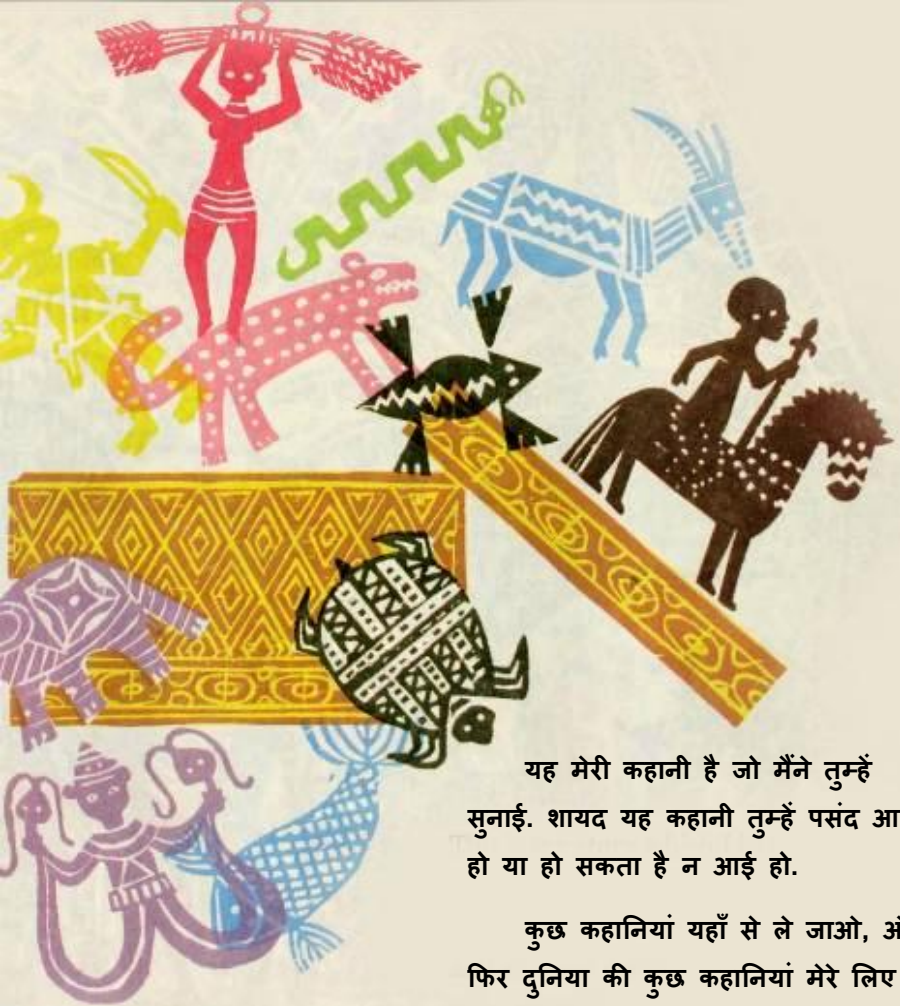 यह मेरी कहानी है जो मैंने तुम्हें
सुनाई. शायद यह कहानी तुम्हें पसंद
हो या हो सकता है न आई हो.
कुछ कहानियां यहाँ से ले जाओ,
फिर दुनिया की कुछ कहानियां मेरे लिए